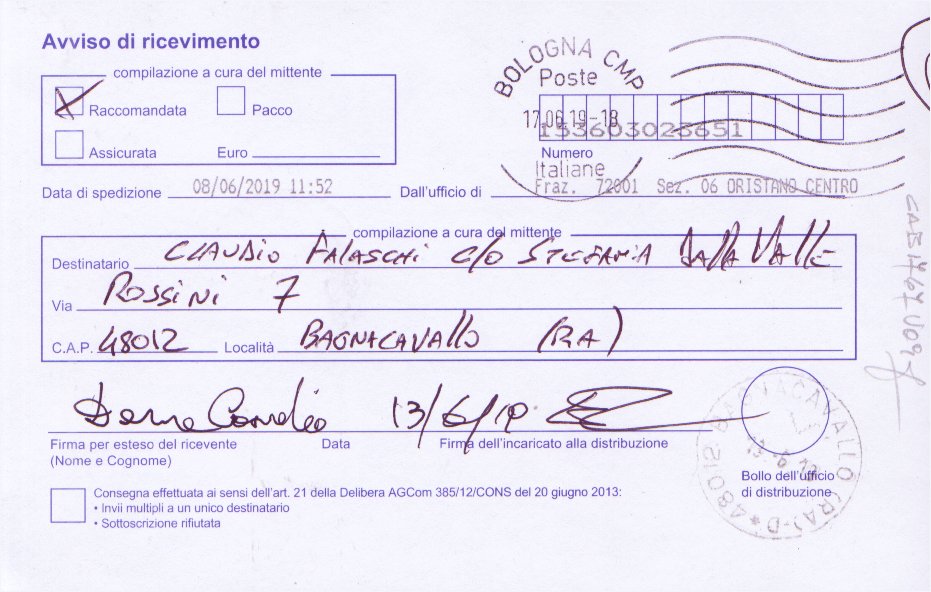 Avviso di ricevimento
BOLOGNA CMP
Poste
compilazione a cura del mittente
Raccomandata Pacco
17.06.19-18
153603023651
Assicurata Euro
Numero
Italiane
Data di spedizione 08/06/2019 11:52 Dall'ufficio di Fraz. 72001 Sez. 06 ORISTANO CENTRO
compilazione a cura del mittente
Destinatario CLAUDIO FALASCHI C/O STEFANIA DALLA VALLE
Via ROSSINI 7
C.A.P. 48012 Località BAGNACAVALLO (RA)
13/6/19
Firma per esteso del ricevente Data Firma dell'incaricato alla distribuzione
(Nome e Cognome)
Bollo dell'ufficio
di distribuzione
Consegna effettuata ai sensi dell'art. 21 della Delibera AGCom 385/12/CONS del 20 giugno 2013:
• Invii multipli a un unico destinatario
• Sottoscrizione rifiutata